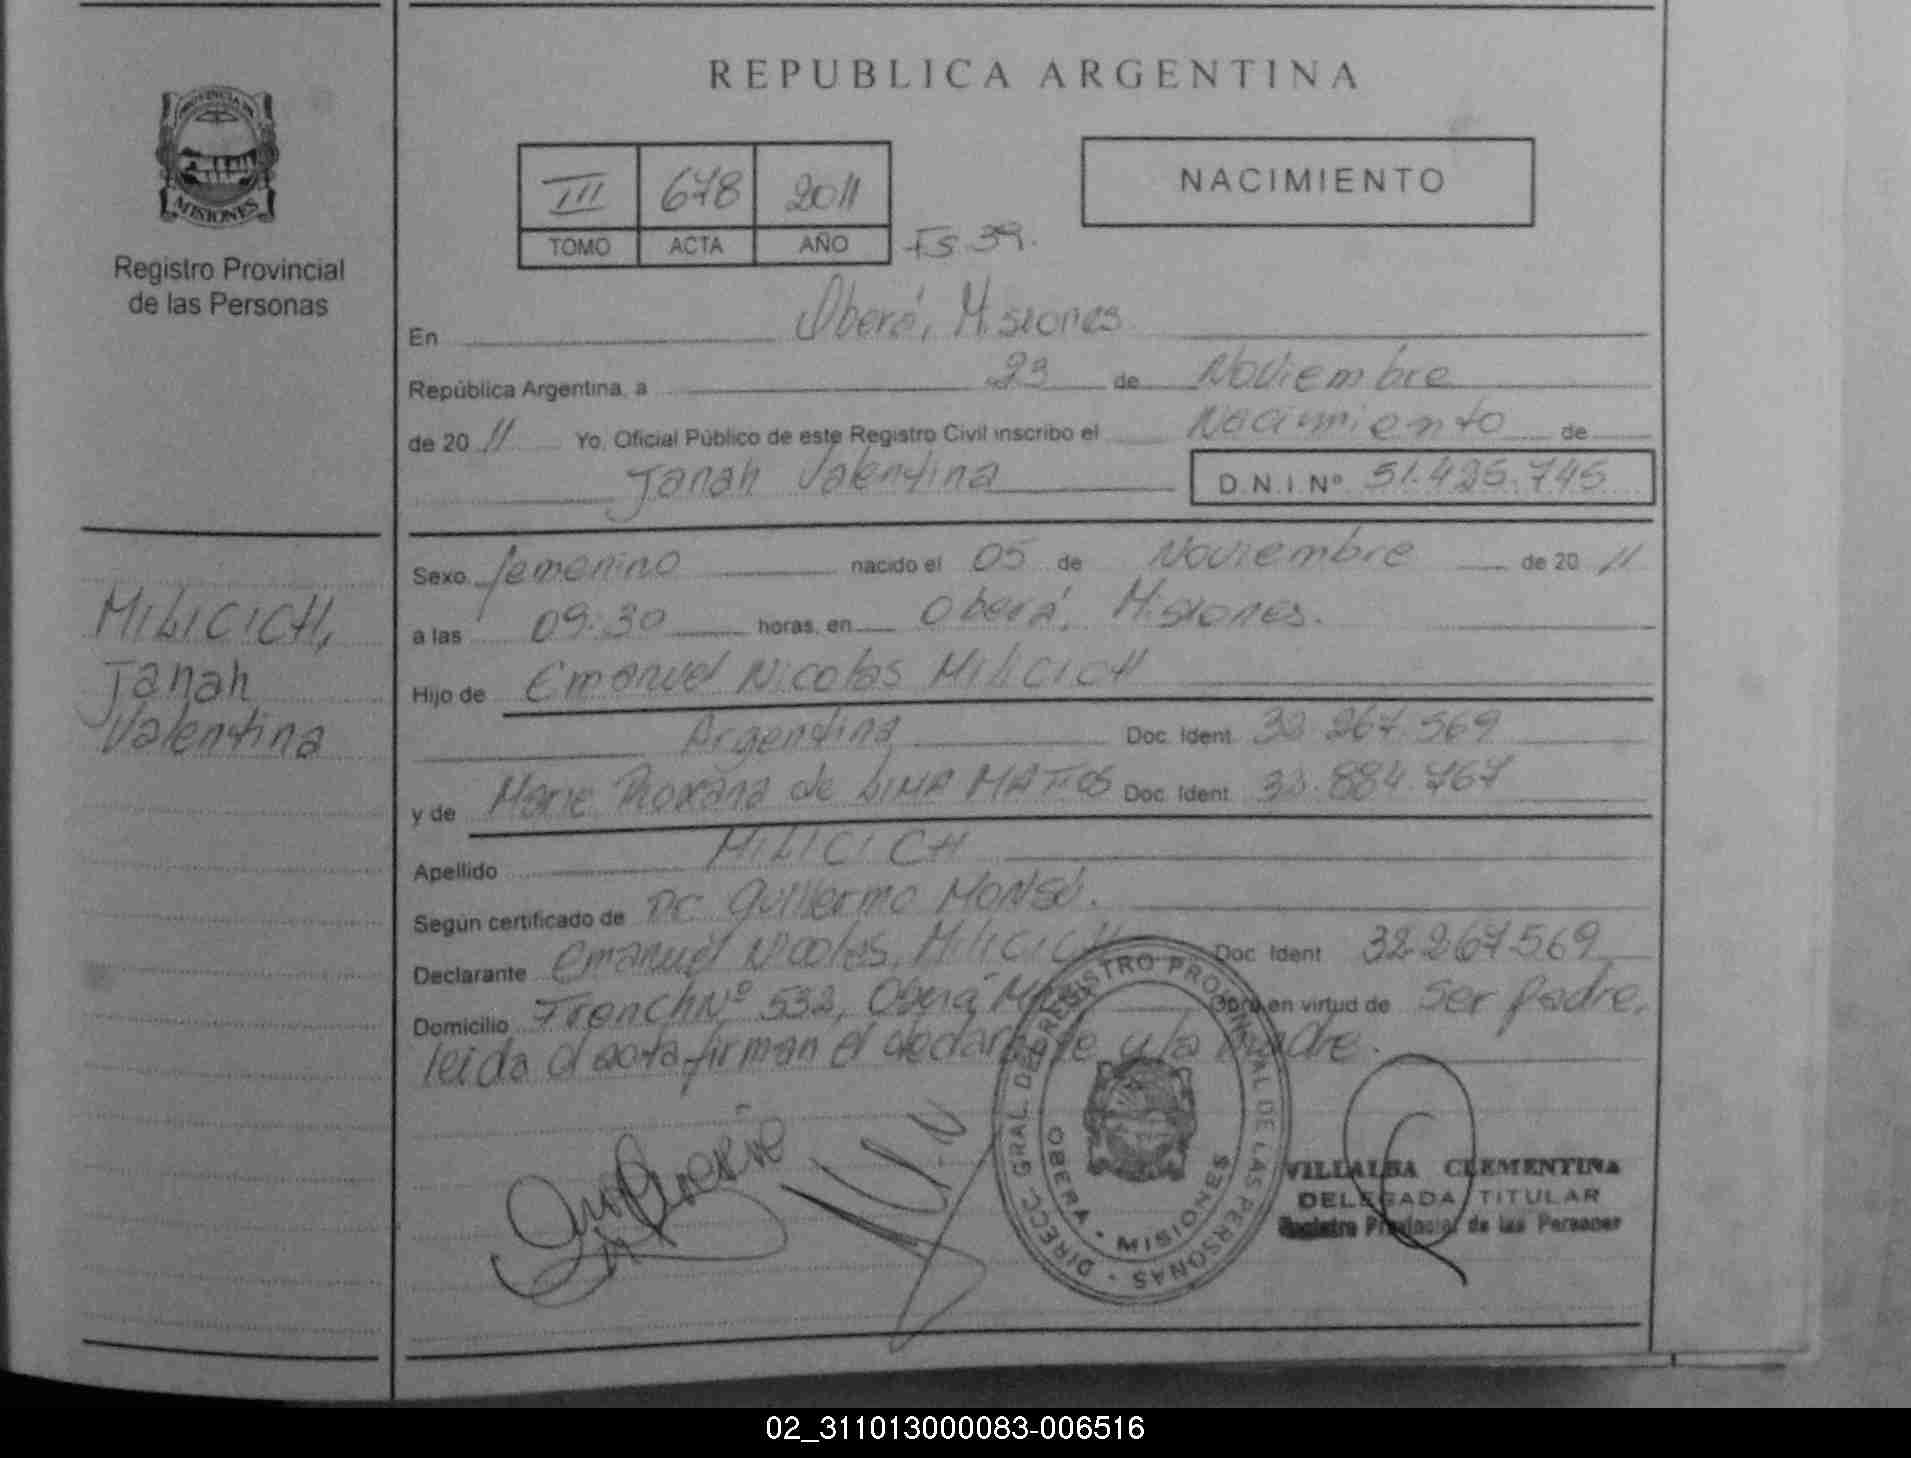 REPUBLICA ARGENTINA
PROVINCIA DE
MISIONES
Registro Provincial
de las Personas
III 678 2011
TOMO ACTA AÑO Fs. 39.
NACIMIENTO
En Oberá, Misiones
República Argentina, a 23 de Noviembre
de 20 11 Yo, Oficial Público de este Registro Civil inscribo el Nacimiento de
Janah Valentina D.N.I.Nº 51.425.745
MILICICH,
Janah
Valentina
Sexo femenino nacido el 05 de Noviembre de 20 11
a las 09:30 horas, en Oberá, Misiones.
Hijo de Emanuel Nicolas MILICICH
Argentina Doc. Ident. 32.267.569
y de Marie Roxana de LIMA MATTOS Doc. Ident. 33.884.767
Apellido MILICICH
Según certificado de Dr Guillermo
Declarante Emanuel Nicolas MILICICH Doc. Ident 32267569
Domicilio French Nº 532, Oberá Obra en virtud de Ser padre,
leida el acta firman el declarante y la madre.
DIRECC. GRAL. DEL REGISTRO PROVINCIAL DE LAS PERSONAS
OBERA - MISIONES
VILLALBA CLEMENTINA
DELEGADA TITULAR
Registro Provincial de las Personas
02_311013000083-006516